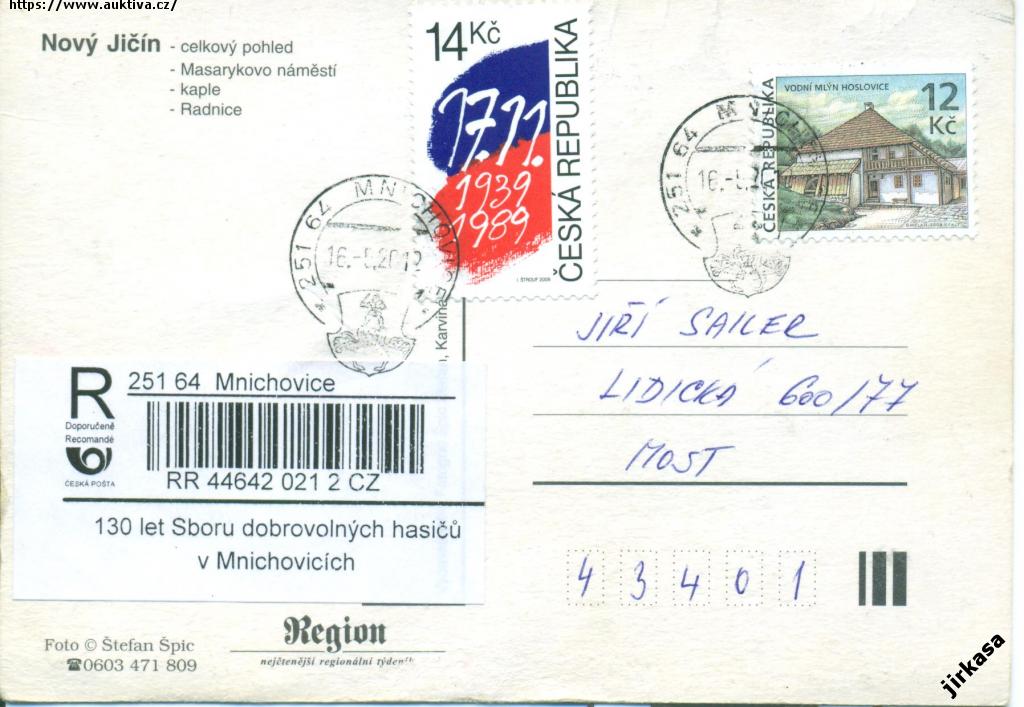 https://www.auktiva.cz/
Nový Jičín - celkový pohled
- Masarykovo náměstí
- kaple
- Radnice
14 Kč
17.11.
1939
1989
ČESKÁ REPUBLIKA
I. ŠTROUF 2009
VODNÍ MLÝN HOSLOVICE
12
Kč
ČESKÁ REPUBLIKA
251 64 MNICHOVICE
16.-
251 64
16.-
Karviná
JIŘÍ SAILER
LIDICKÁ 600/77
MOST
43401
R 251 64 Mnichovice
Doporučeně
Recomandé
ČESKÁ POŠTA
RR 44642 021 2 CZ
130 let Sboru dobrovolných hasičů
v Mnichovicích
Foto © Štefan Špic
☎0603 471 809
Region
nejčtenější regionální týdeník
jirkasa